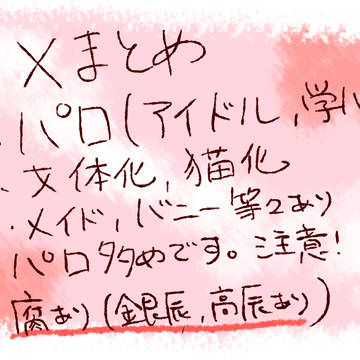 Xまとめ
・パロ(アイドル,学パ
・女体化,猫化
・メイド,バニー等々あり
パロ多めです。注意!
腐あり(銀辰,高辰あり)